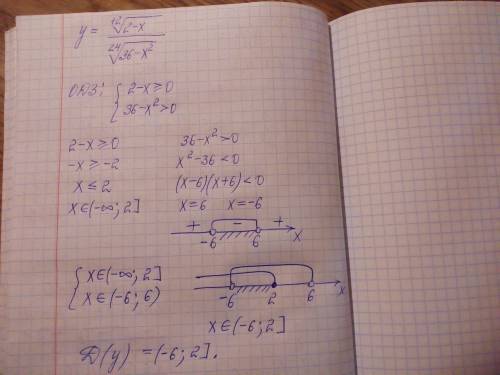 y = \frac{\sqrt[12]{2-x}}{\sqrt[24]{36-x²}}
ОДЗ: { 2-x ≥ 0
36-x² > 0
2-x ≥ 0 36-x² > 0
-x ≥ -2 x² - 36 < 0
x ≤ 2 (x-6)(x+6) < 0
x ∈ (-∞; 2] x = 6 x = -6
+ - +
-6 6 x
{ x ∈ (-∞; 2]
x ∈ (-6; 6)
-6 2 6 x
x ∈ (-6; 2]
D(y) = (-6; 2].